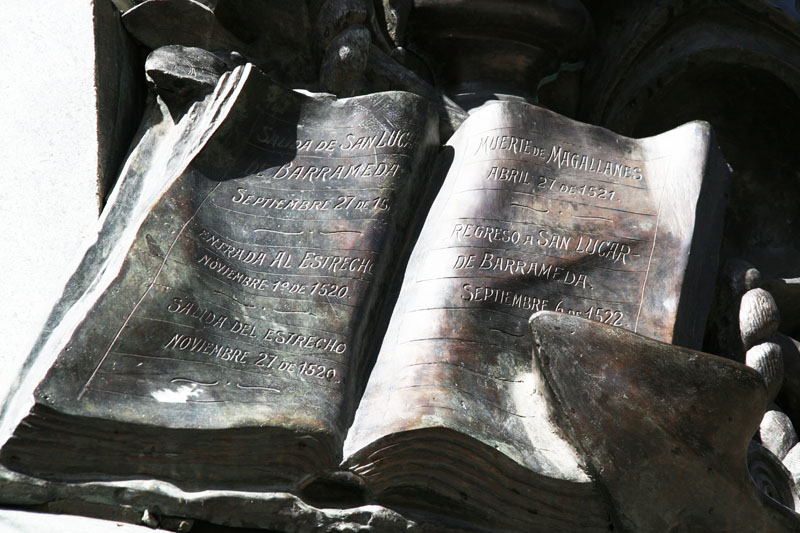 SALIDA DE SAN LUCAR
DE BARRAMEDA
SEPTIEMBRE 27 DE 15
ENTRADA AL ESTRECHO
NOVIEMBRE 1º DE 1520.
SALIDA DEL ESTRECHO
NOVIEMBRE 27 DE 1520.
MUERTE DE MAGALLANES
ABRIL 27 DE 1521.
REGRESO A SAN LUCAR-
DE BARRAMEDA.
SEPTIEMBRE 6 DE 1522.